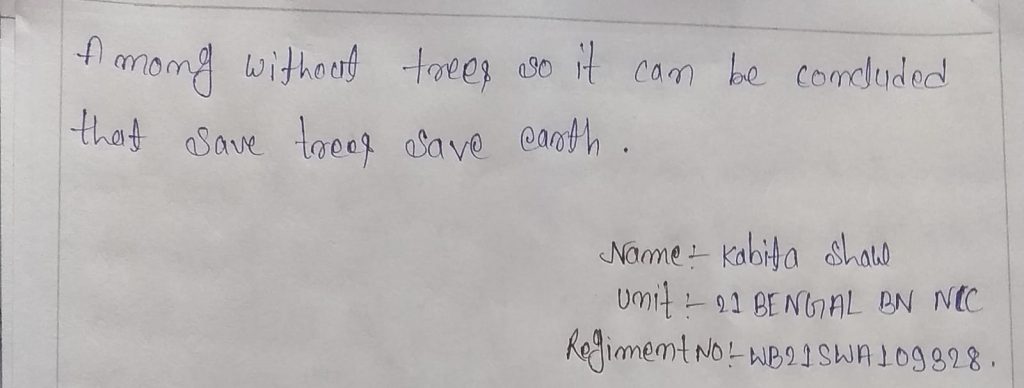 Among without trees so it can be concluded
that save trees save earth.
Name:- Kabita Shaw
Unit:- 21 BENGAL BN NCC
Regiment No:- WB21SWA109328.